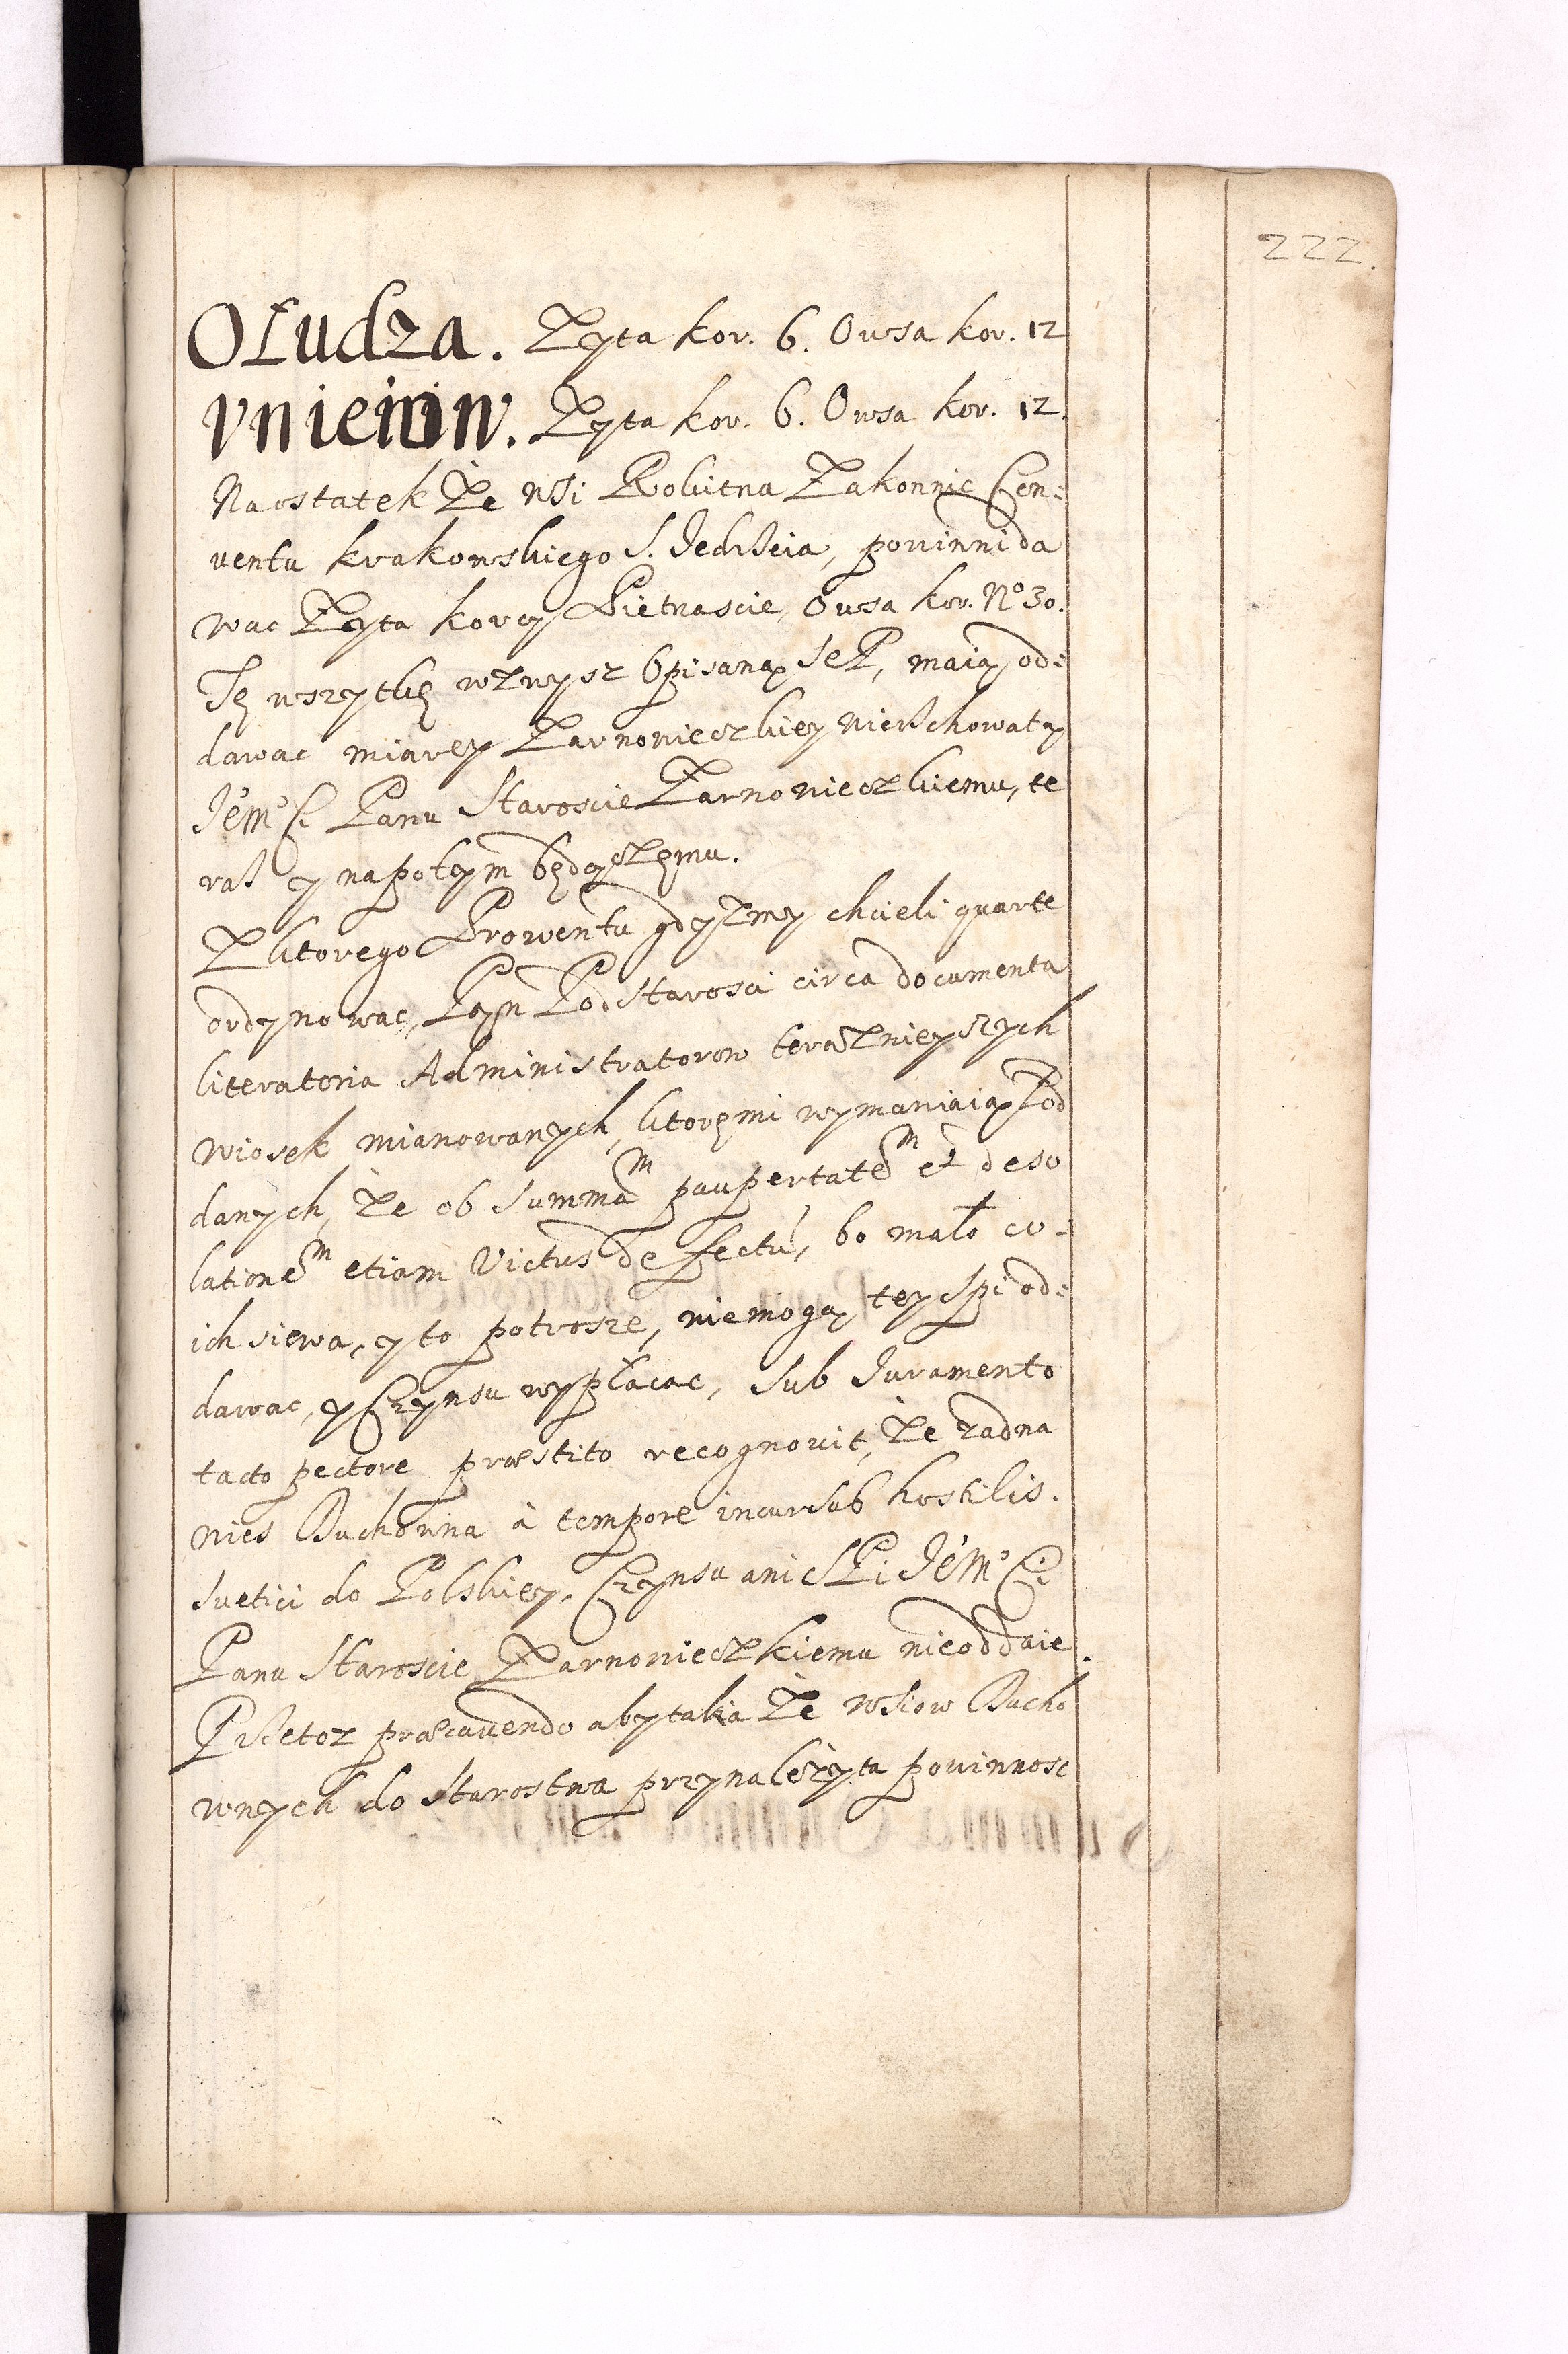 222.
Ołudza. Zyta kor. 6. Owsa kor. 12
Vnieiow. Zyta kor. 6. Owsa kor. 12.
Na ostatek Ze wsi Rokitna Zakonnic Con:
uentu krakowskiego S. Jedrzeia, powinni da
wac Zyta korcy Pietnascie, Owsa kor. No 30.
Tę wszytkę wzwysz Opisaną SeP, maią od:
dawac miarą Zarnowieczkiey nierschowatą
Jemo Ci Panu Staroscie Zarnowieczkiemu, te
raz y napotym będączęmu.
Z ktorego Prowentu gdyzmy chcieli quarte
ordynowac, Pan Podstarosci circa documenta
literatoria Administratorow teraznieyszych
wiosek mianowanych, ktoręmi wymawiaią Pod
danych, ze ob summam paupertatem et deso
lationem etiam Victus defectu, bo mało co-
ich siewa, y to potrosze, niemogą tey Spi od:
dawac, y Czynsu wypłacac, sub Juramento
tacto pectore præstito recognouit, Ze zadna
wies Duchowna à tempore incursus hostilis.
suetici do Polskiey, Czynsu ani SPi Jemo Ci
Panu Staroscie Zarnowieczkiemu nieoddaie.
Przetoz præcauendo aby takia Ze wsiow Ducho
wnych do Starostwa przynalezyta powinnosc